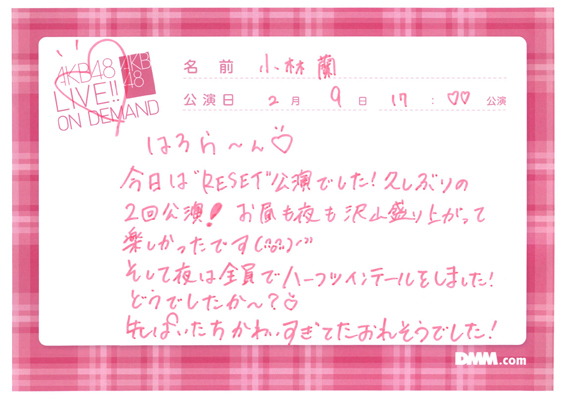 AKB48
LIVE!!
ON DEMAND
AKB
48
名前 小林 蘭
公演日 2月 9日 17:♡♡公演
はろら〜ん♡
今日は"RESET"公演でした!久しぶりの
2回公演! お昼も夜も沢山盛り上がって
楽しかったです
そして夜は全員でハーフツインテールをしました!
どうでしたか〜?♡
先ぱいたちかわいすぎてたおれそうでした!
DMM.com